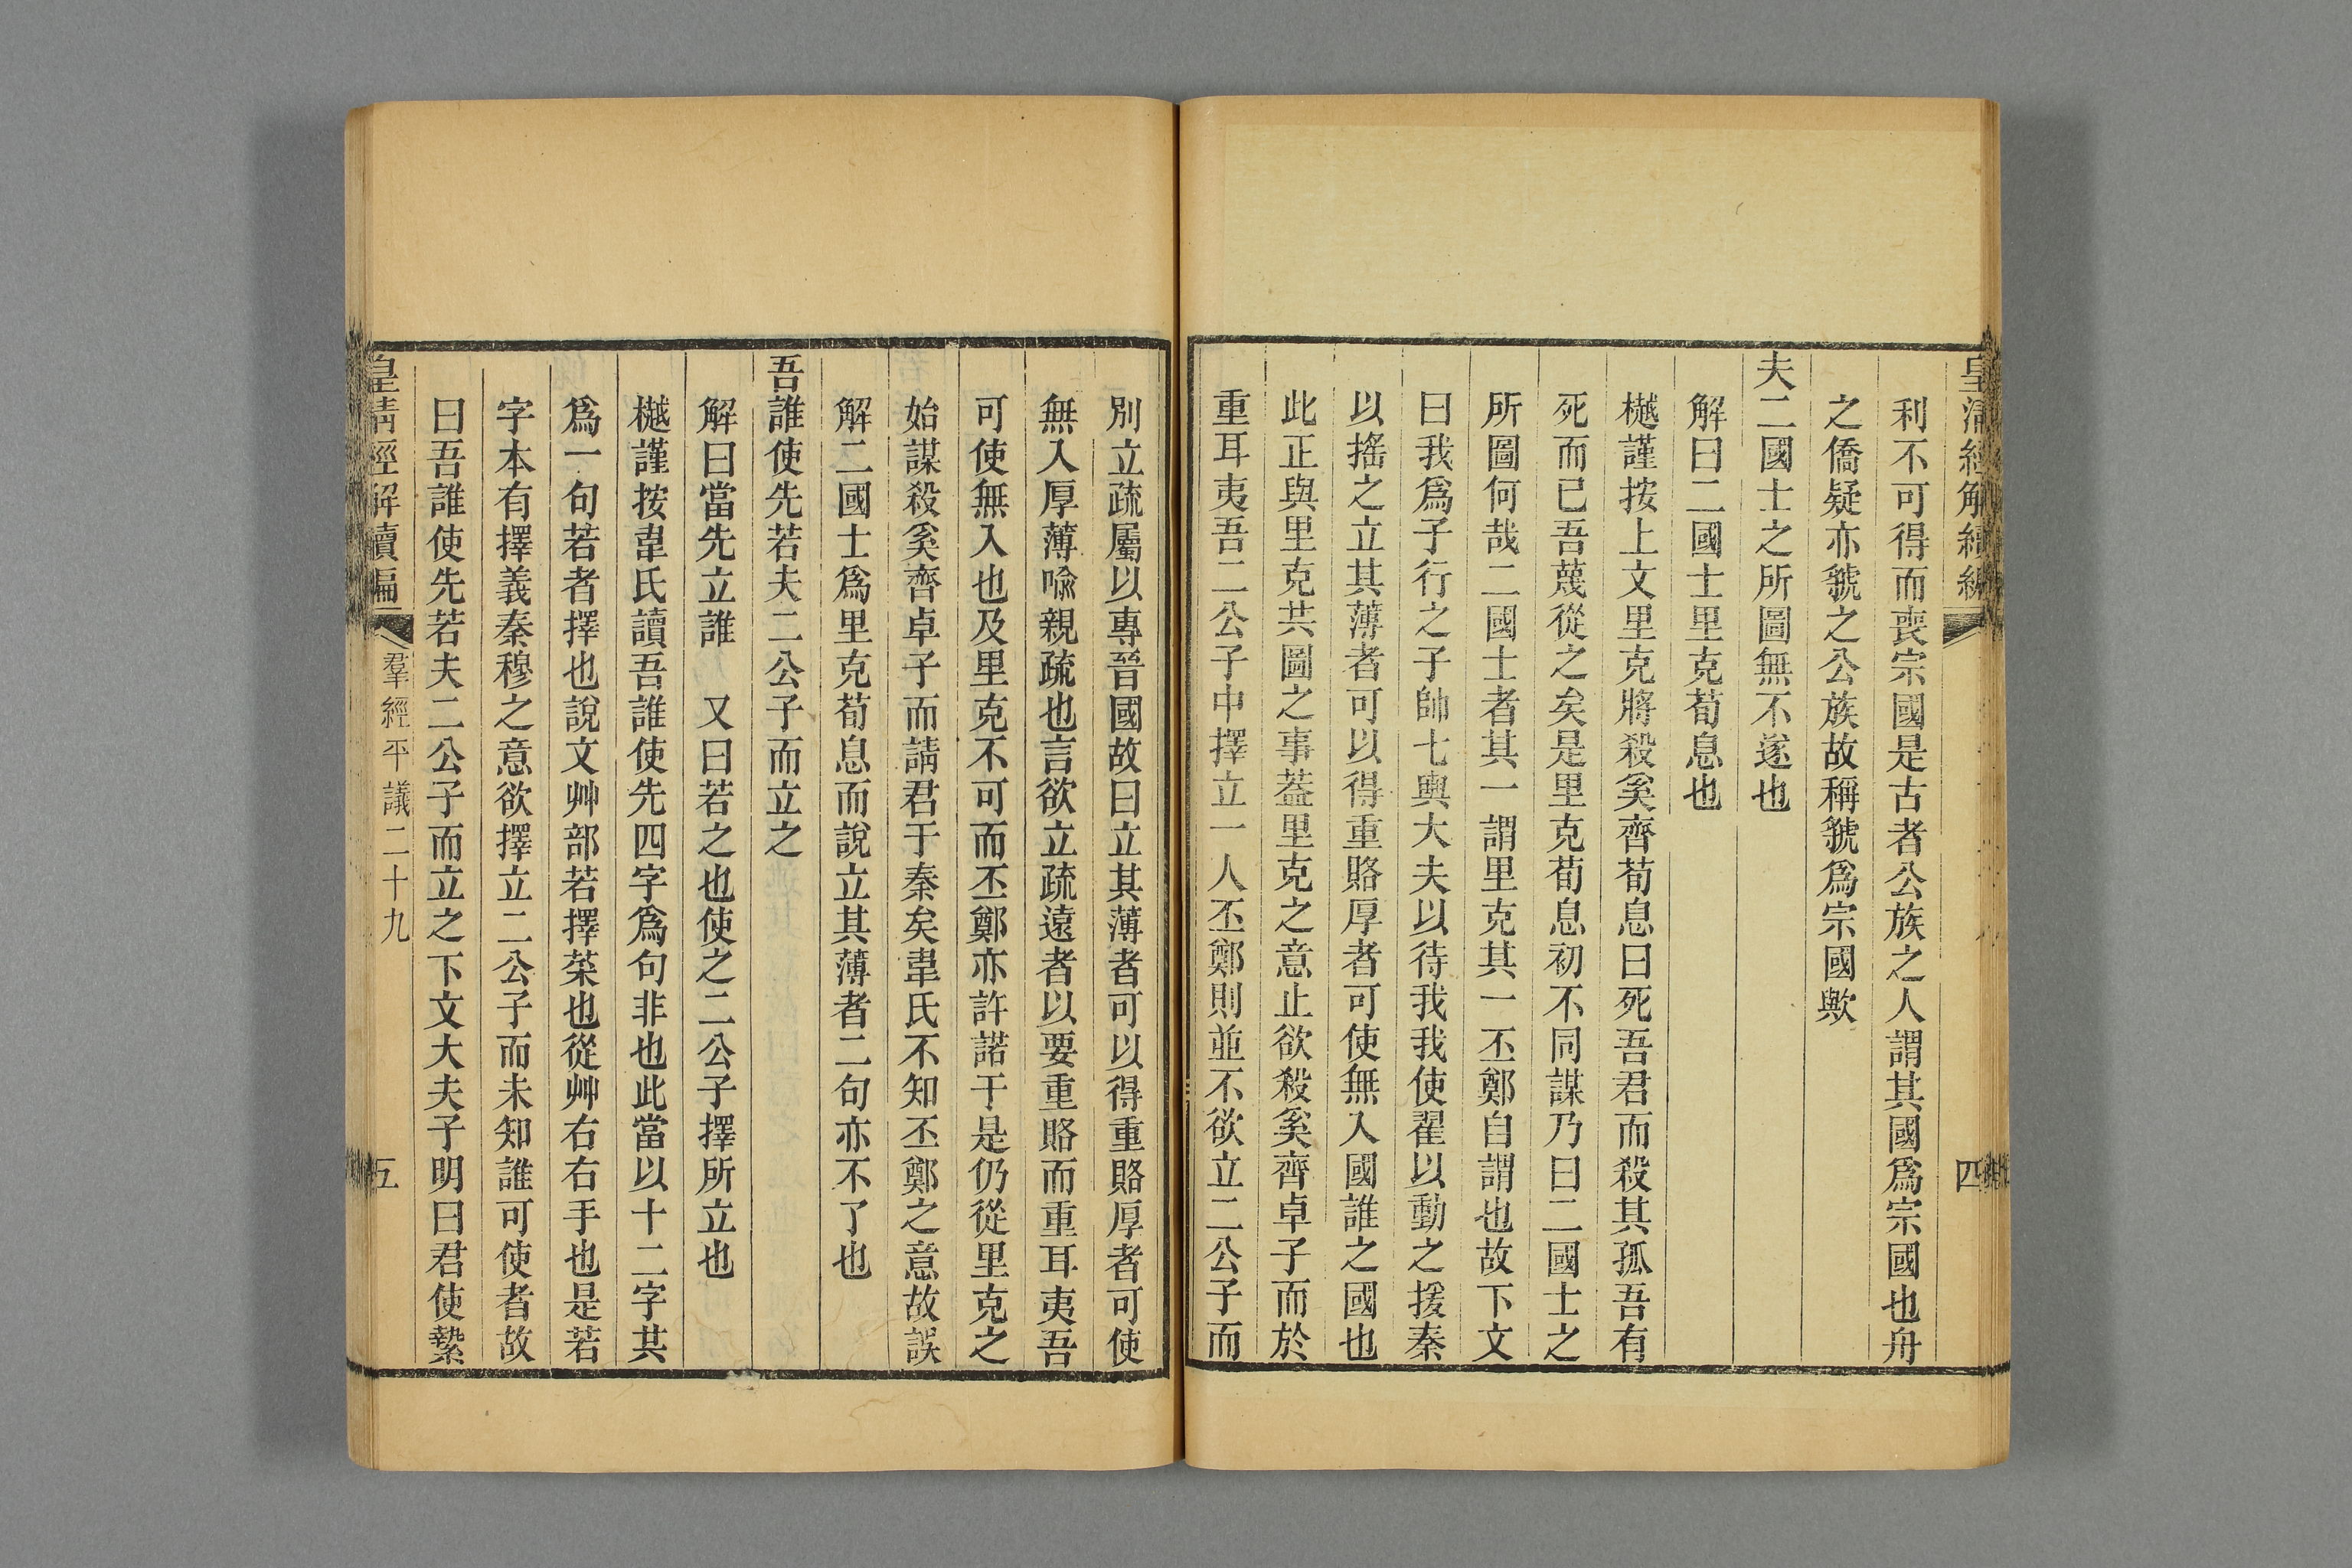 皇清經解續編
四
利不可得而喪宗國是古者公族之人謂其國爲宗國也舟
之僑疑亦虢之公族故稱虢爲宗國歟
夫二國士之所圖無不遂也
解曰二國士里克荀息也
樾謹按上文里克將殺奚齊荀息曰死吾君而殺其孤吾有
死而已吾蔑從之矣是里克荀息初不同謀乃曰二國士之
所圖何哉二國士者其一謂里克其一丕鄭自謂也故下文
曰我爲子行之子帥七輿大夫以待我我使翟以動之援秦
以搖之立其薄者可以得重賂厚者可使無入國誰之國也
此正與里克共圖之事葢里克之意止欲殺奚齊卓子而於
重耳夷吾二公子中擇立一人丕鄭則並不欲立二公子而
別立疏屬以專晉國故曰立其薄者可以得重賂厚者可使
無入厚薄喩親疏也言欲立疏遠者以要重賂而重耳夷吾
可使無入也及里克不可而丕鄭亦許諾于是仍從里克之
始謀殺奚齊卓子而請君于秦矣韋氏不知丕鄭之意故誤
解二國士爲里克荀息而說立其薄者二句亦不了也
吾誰使先若夫二公子而立之
解曰當先立誰　又曰若之也使之二公子擇所立也
樾謹按韋氏讀吾誰使先四字爲句非也此當以十二字共
爲一句若者擇也說文艸部若擇菜也從艸右右手也是若
字本有擇義秦穆之意欲擇立二公子而未知誰可使者故
曰吾誰使先若夫二公子而立之下文大夫子明曰君使縶
皇清經解續編
羣經平議二十九
五